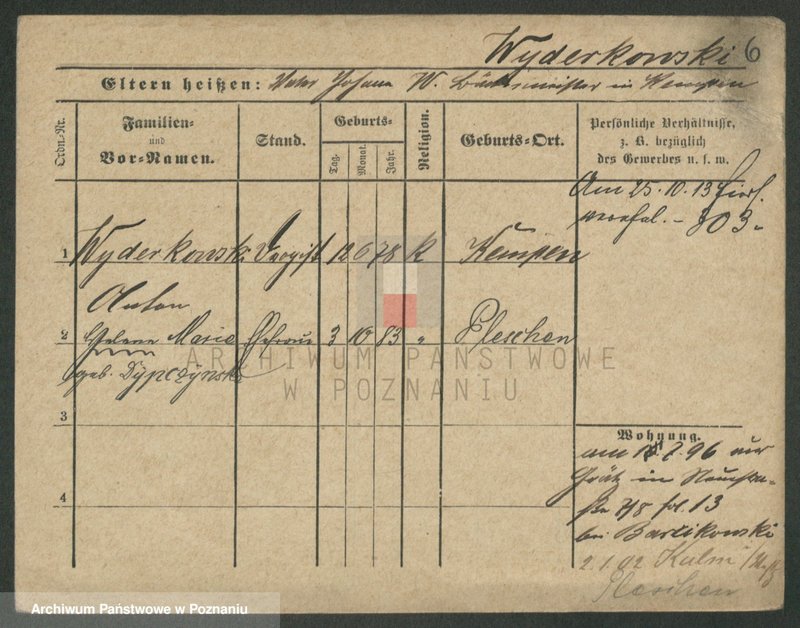 Wyderkowski 6
Eltern heißen: Vater Johann W. Bäckermeister in Kempen
Ordn.-Nr.
Familien-
und
Vor-Namen.
Stand.
Geburts-
Tag.
Monat.
Jahr.
Religion.
Geburts-Ort.
Persönliche Verhältnisse,
z. B. bezüglich
des Gewerbes u. s. w.
Am 25.10.13
803.
1 Wyderkowski Drogist 12 6 78 K Kempen
Anton
2 Helene Marie Ehefrau 3 10 83 " Pleschen
geb.
3
4
Wohnung.
am 96
Grätz in
13
bei Bartikowski
2.1.02 Kulm
Pleschen
ARCHIWUM PAŃSTWOWE
W POZNANIU
Archiwum Państwowe w Poznaniu